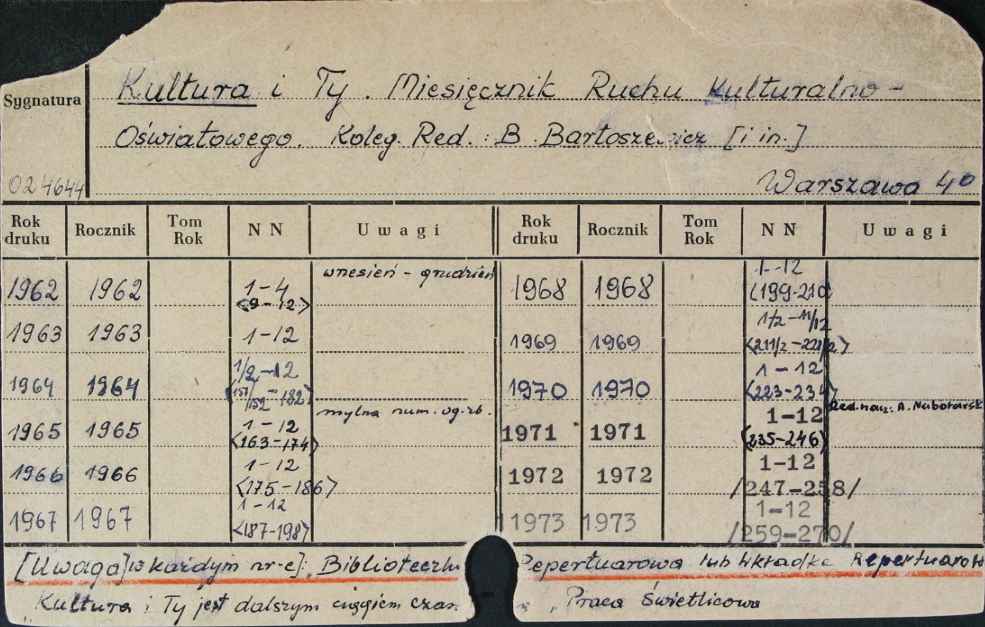 Kultura i Ty. Miesięcznik Ruchu Kulturalno-
Sygnatura
Oświatowego. Koleg. Red.: B. Bartoszewicz [i in.]
024644 Warszawa 4°
Rok druku Rocznik Tom Rok NN Uwagi Rok druku Rocznik Tom Rok NN Uwagi
1962 1962 1-4 <9-12> wrzesień - grudzień 1968 1968 1-12 <199-210
1963 1963 1-12 1969 1969 1/2-11/12 <211/2-221/2>
1964 1964 1/2-12 <151/152-182> 1970 1970 1-12 <223-234>
1965 1965 1-12 <163-174> mylna num. og. zb. 1971 1971 1-12 <235-246> Red. nacz: A. Niborski
1966 1966 1-12 <175-186> 1972 1972 1-12 /247-258/
1967 1967 1-12 <187-198> 1973 1973 1-12 /259-270/
[Uwaga] w każdym nr-e: Biblioteczka Repertuarowa lub Wkładka Repertuarow
"Kultura i Ty jest dalszym ciągiem czas. "Praca Świetlicowa